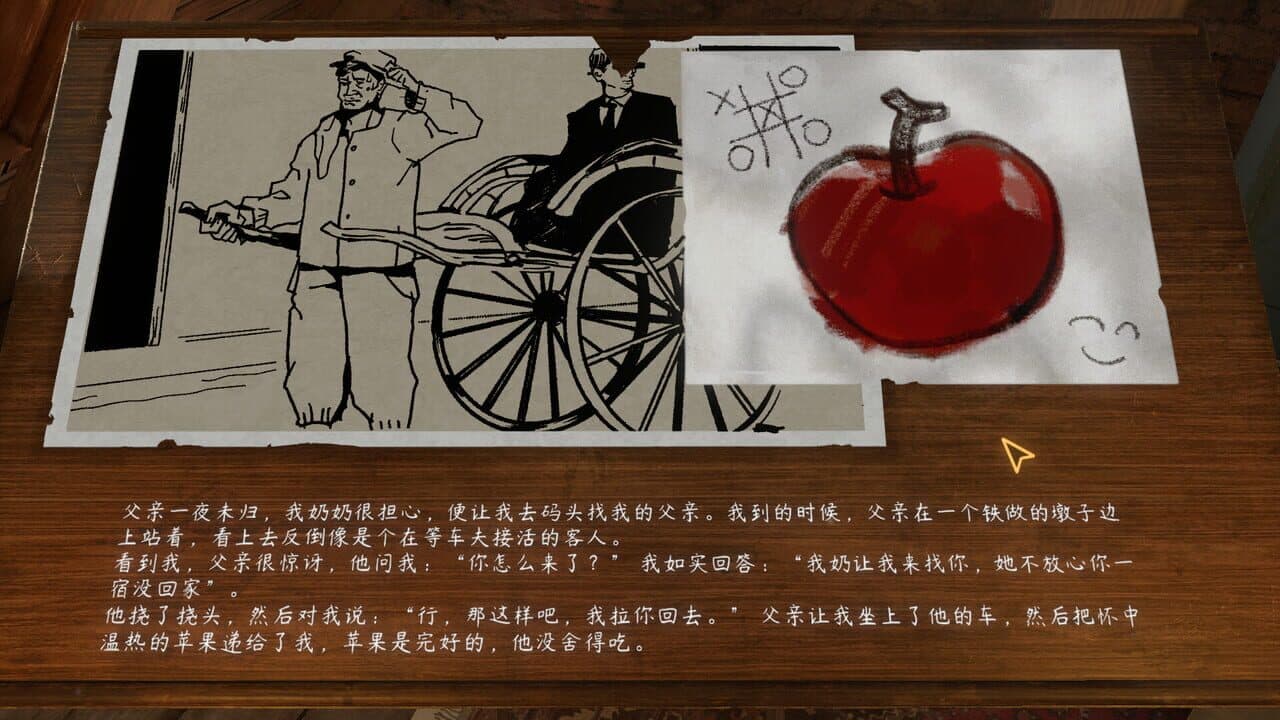 父亲一夜未归，我奶奶很担心，便让我去码头找我的父亲。我到的时候，父亲在一个铁做的墩子边
上站着，看上去反倒像是个在等车夫接活的客人。
看到我，父亲很惊讶，他问我：“你怎么来了？” 我如实回答：“我奶让我来找你，她不放心你一
宿没回家”。
他挠了挠头，然后对我说：“行，那这样吧，我拉你回去。” 父亲让我坐上了他的车，然后把怀中
温热的苹果递给了我，苹果是完好的，他没舍得吃。